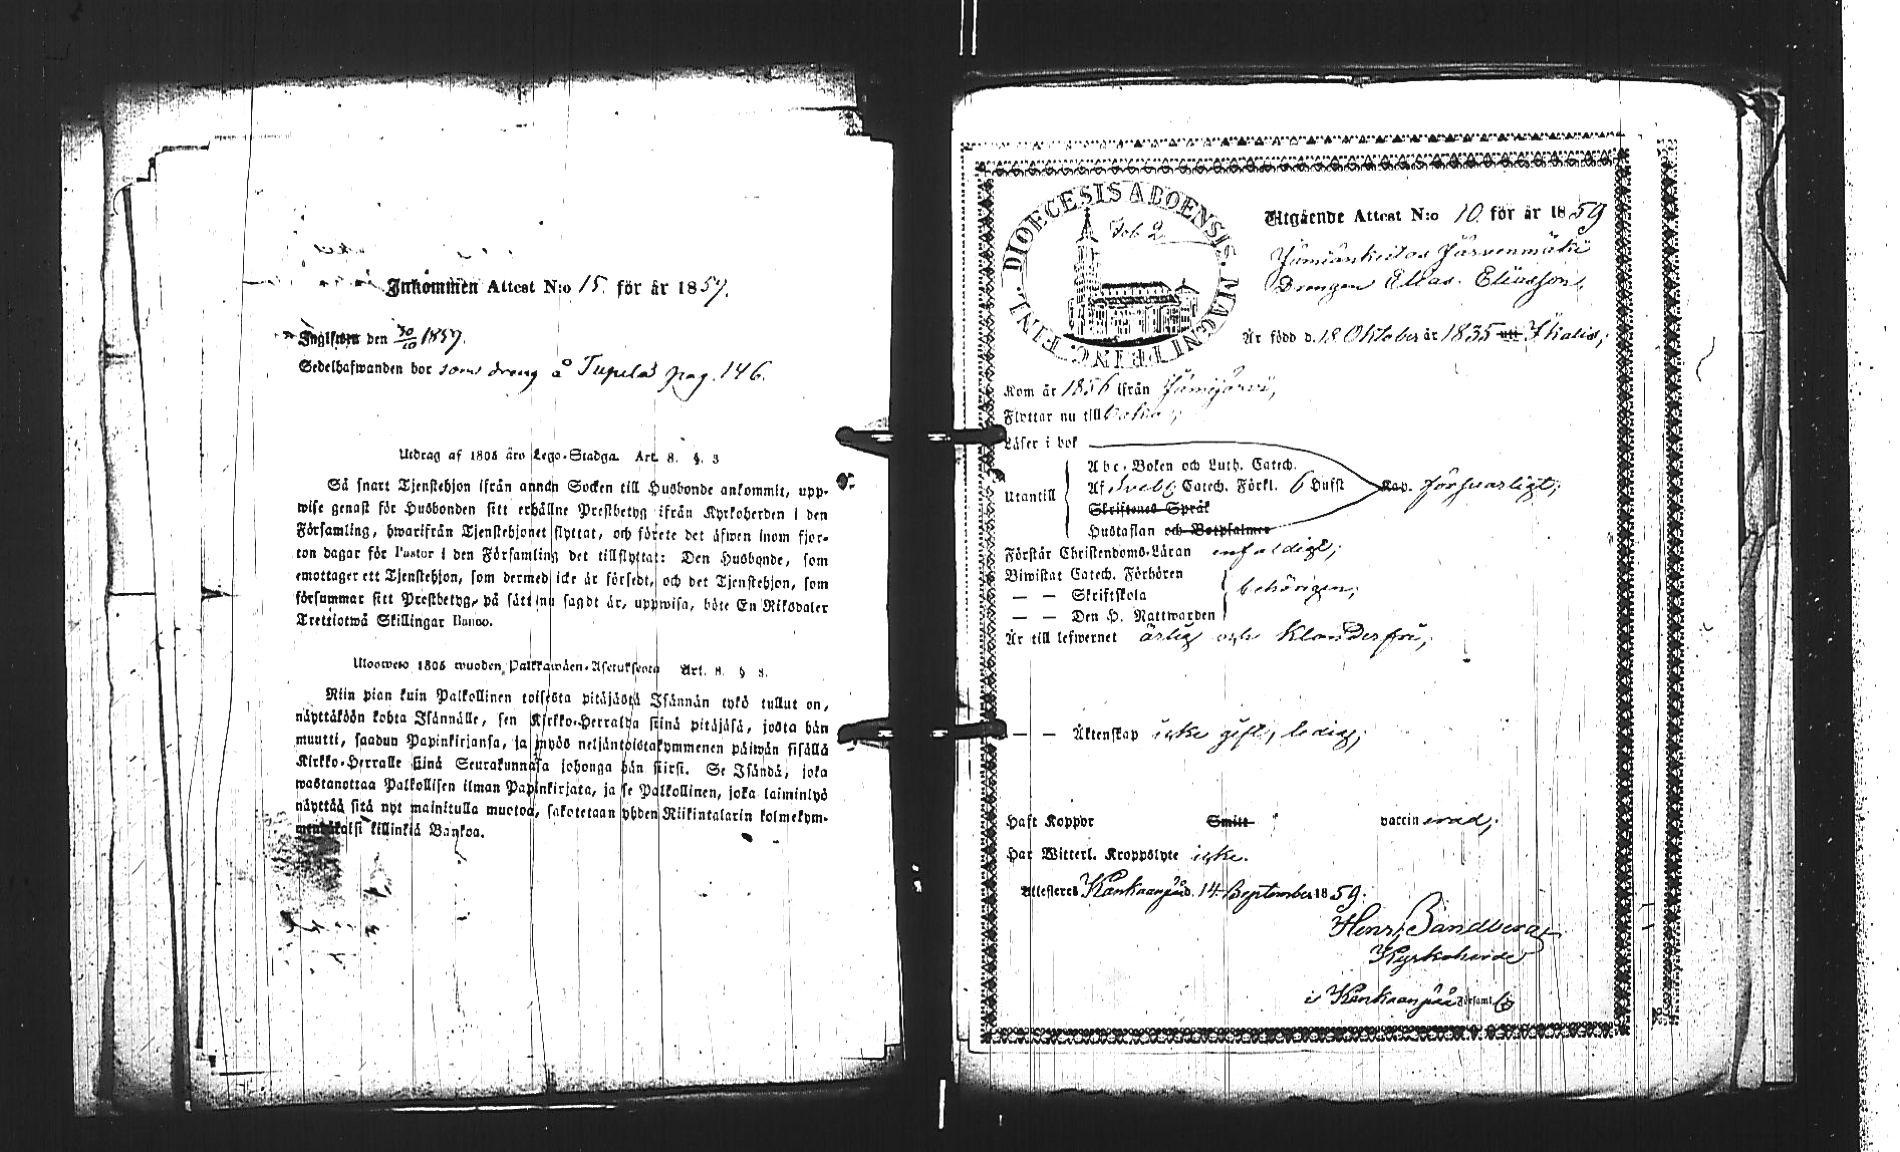 Inkommen Attest N:o 15. för år 1859.
Ingifwen den 30/10 1859.
Sedelhafwanden bor som dreng å Tupelas pag. 146.
Utdrag af 1805 års Lego-Stadga. Art. 8. §. 3
Så snart Tjenstehjon ifrån annan Socken till Husbonde ankommit, upp-
wise genast för Husbonden sitt erhållne Prestbetyg ifrån Kyrkoherden i den
Församling, hwarifrån Tjenstehjonet flyttat, och förete det äfwen inom fjor-
ton dagar för Pastor i den Församling det tillflyttat: Den Husbonde, som
emottager ett Tjenstehjon, som dermed icke är försedt, och det Tjenstehjon, som
försummar sitt Prestbetyg, på sätt nu sagdt är, uppwisa, böte En Riksdaler
Trettiotwå Skillingar Banco.
Ulosweto 1805 wuoden Palkkawäen-Asetuksesta Art. 8. § 3.
Niin pian kuin Palkollinen toisesta pitäjästä Isännän tykö tullut on,
näyttäköön kohta Isännälle, sen Kirkko-Herralda siinä pitäjäsä, josta hän
muutti, saadun Papinkirjansa, ja myös neljäntoistakymmenen päiwän sisällä
Kirkko-Herralle siinä Seurakunnasa johonga hän siirsi. Se Isändä, joka
wastanottaa Palkollisen ilman Papinkirjata, ja se Palkollinen, joka laiminlyö
näyttää sitä nyt mainitulla muotoa, sakotetaan yhden Riikintalarin kolmekym-
mendäkaksi killinkiä Bankoa.
DIOECESIS ABOENSIS. MAGNI PRINC. FINL.
Fol. 2
Utgående Attest N:o 10 för år 1859
Jämiänkeitas Järvenmäki
Drengen Elias Eliasson,
Är född d. 18 Oktober år 1835 uti Ikalis;
Kom år 1856 ifrån Jämijärvi,
Flyttar nu till
Läser i bok
Abc-Boken och Luth. Catech.
Utantill
Af Sveb. Catech. Förkl. 6 Hufst Kap. försvarligt;
Skriftenes Språk
Hustaflan och Botpsalmer
Förstår Christendoms-Läran enfaldigt;
Biwistat Catech. Förhören
— — Skriftskola behörigen;
— — Den H. Nattwarden
Är till lefwernet ärlig och klanderfri;
— — Äktenskap icke gift, ledig;
Haft Koppor Smitt vaccinerad;
Har Witterl. Kroppslyte icke.
Attesteras Kankaanpää d. 14 September 1859.
Henr. Sandberg
Kyrkoherde
i Kankaanpää Församl.